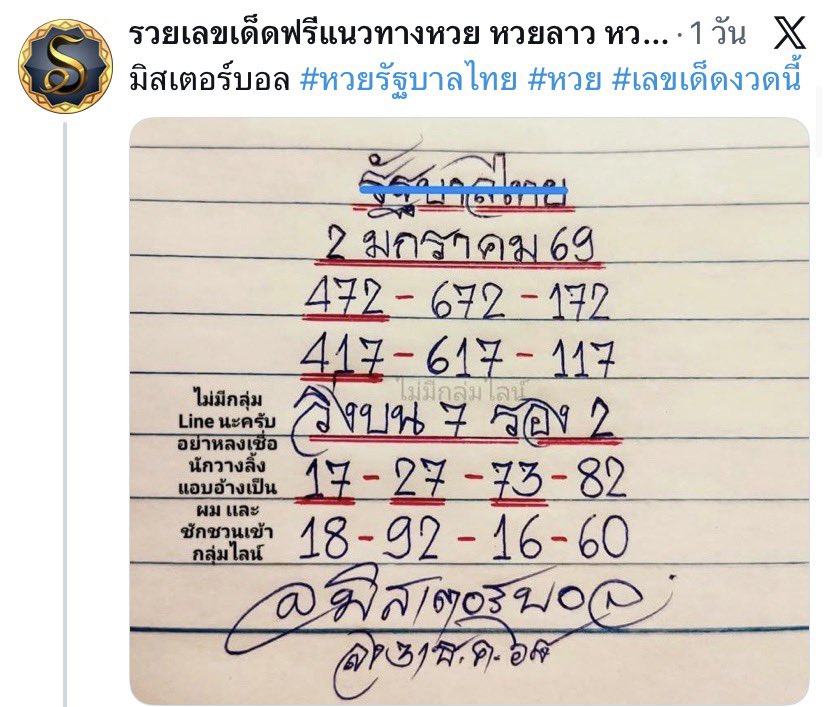 รวยเลขเด็ดฟรีแนวทางหวย หวยลาว หว... · 1 วัน
มิสเตอร์บอล #หวยรัฐบาลไทย #หวย #เลขเด็ดงวดนี้
รัฐบาลไทย
2 มกราคม 69
472 - 672 - 172
417 - 617 - 117
ไม่มีกลุ่มไลน์
วิ่งบน 7 รอง 2
17 - 27 - 73 - 82
18 - 92 - 16 - 60
ไม่มีกลุ่ม
Line นะครับ
อย่าหลงเชื่อ
นักวางลิ้ง
แอบอ้างเป็น
ผม และ
ชักชวนเข้า
กลุ่มไลน์
@มิสเตอร์บอล